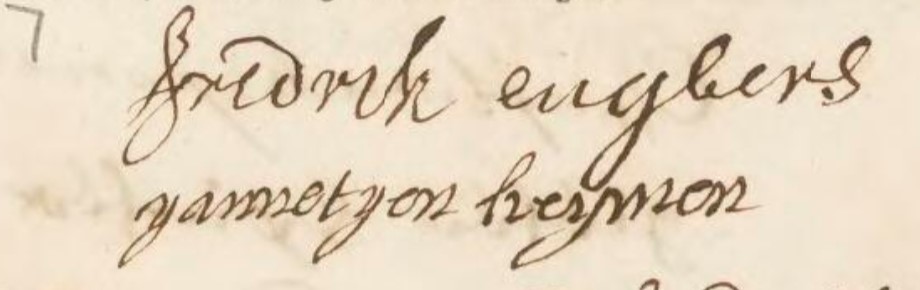 7
fredrik engbers
yannetyen heymen